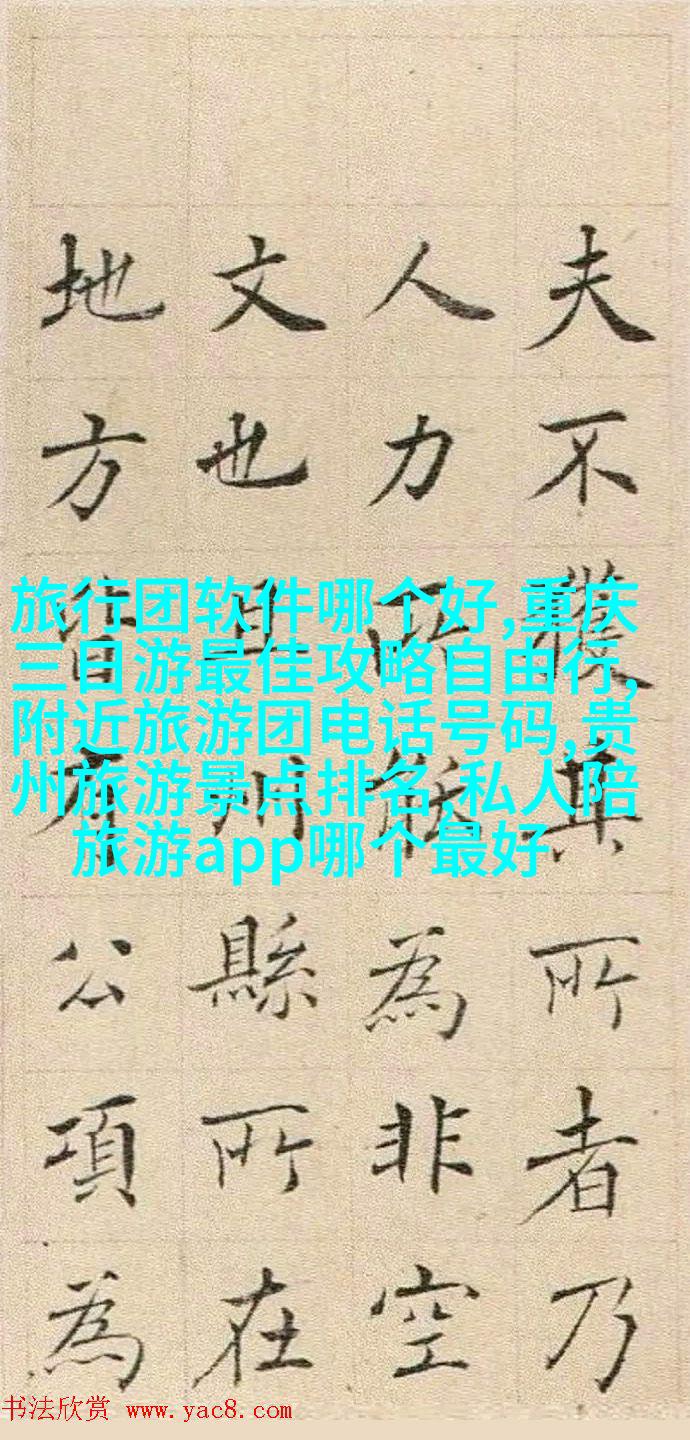 夫不獲其所者乃
人力所能為非空
文也且州縣所在
地方皆有公項為
旅行团软件哪个好,重庆
三日游最佳攻略自由行,
附近旅游团电话号码,贵
州旅游景点排名,私人陪
旅游app哪个最好
书法欣赏 www.yac8.com